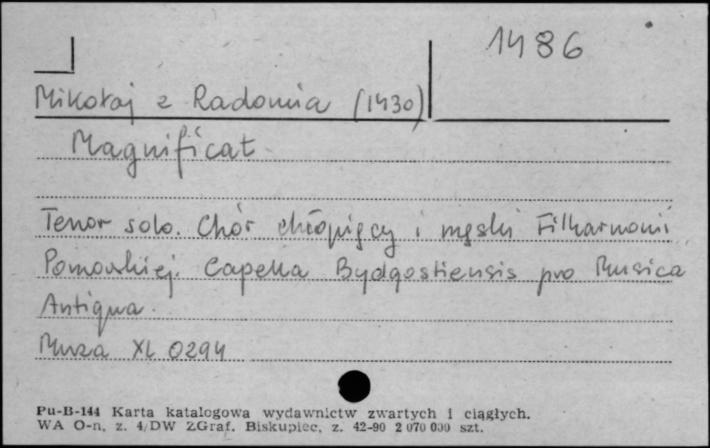 1486
Mikołaj z Radomia (1430)
Magnificat
Tenor solo. Chór chłopięcy i męski Filharmonii
Pomorskiej. Capella Bydgostiensis pro Musica
Antiqua.
Muza XL 0294
Pu-B-144 Karta katalogowa wydawnictw zwartych i ciągłych.
WA O-n, z. 4/DW ZGraf. Biskupiec, z. 42-90 2 070 000 szt.